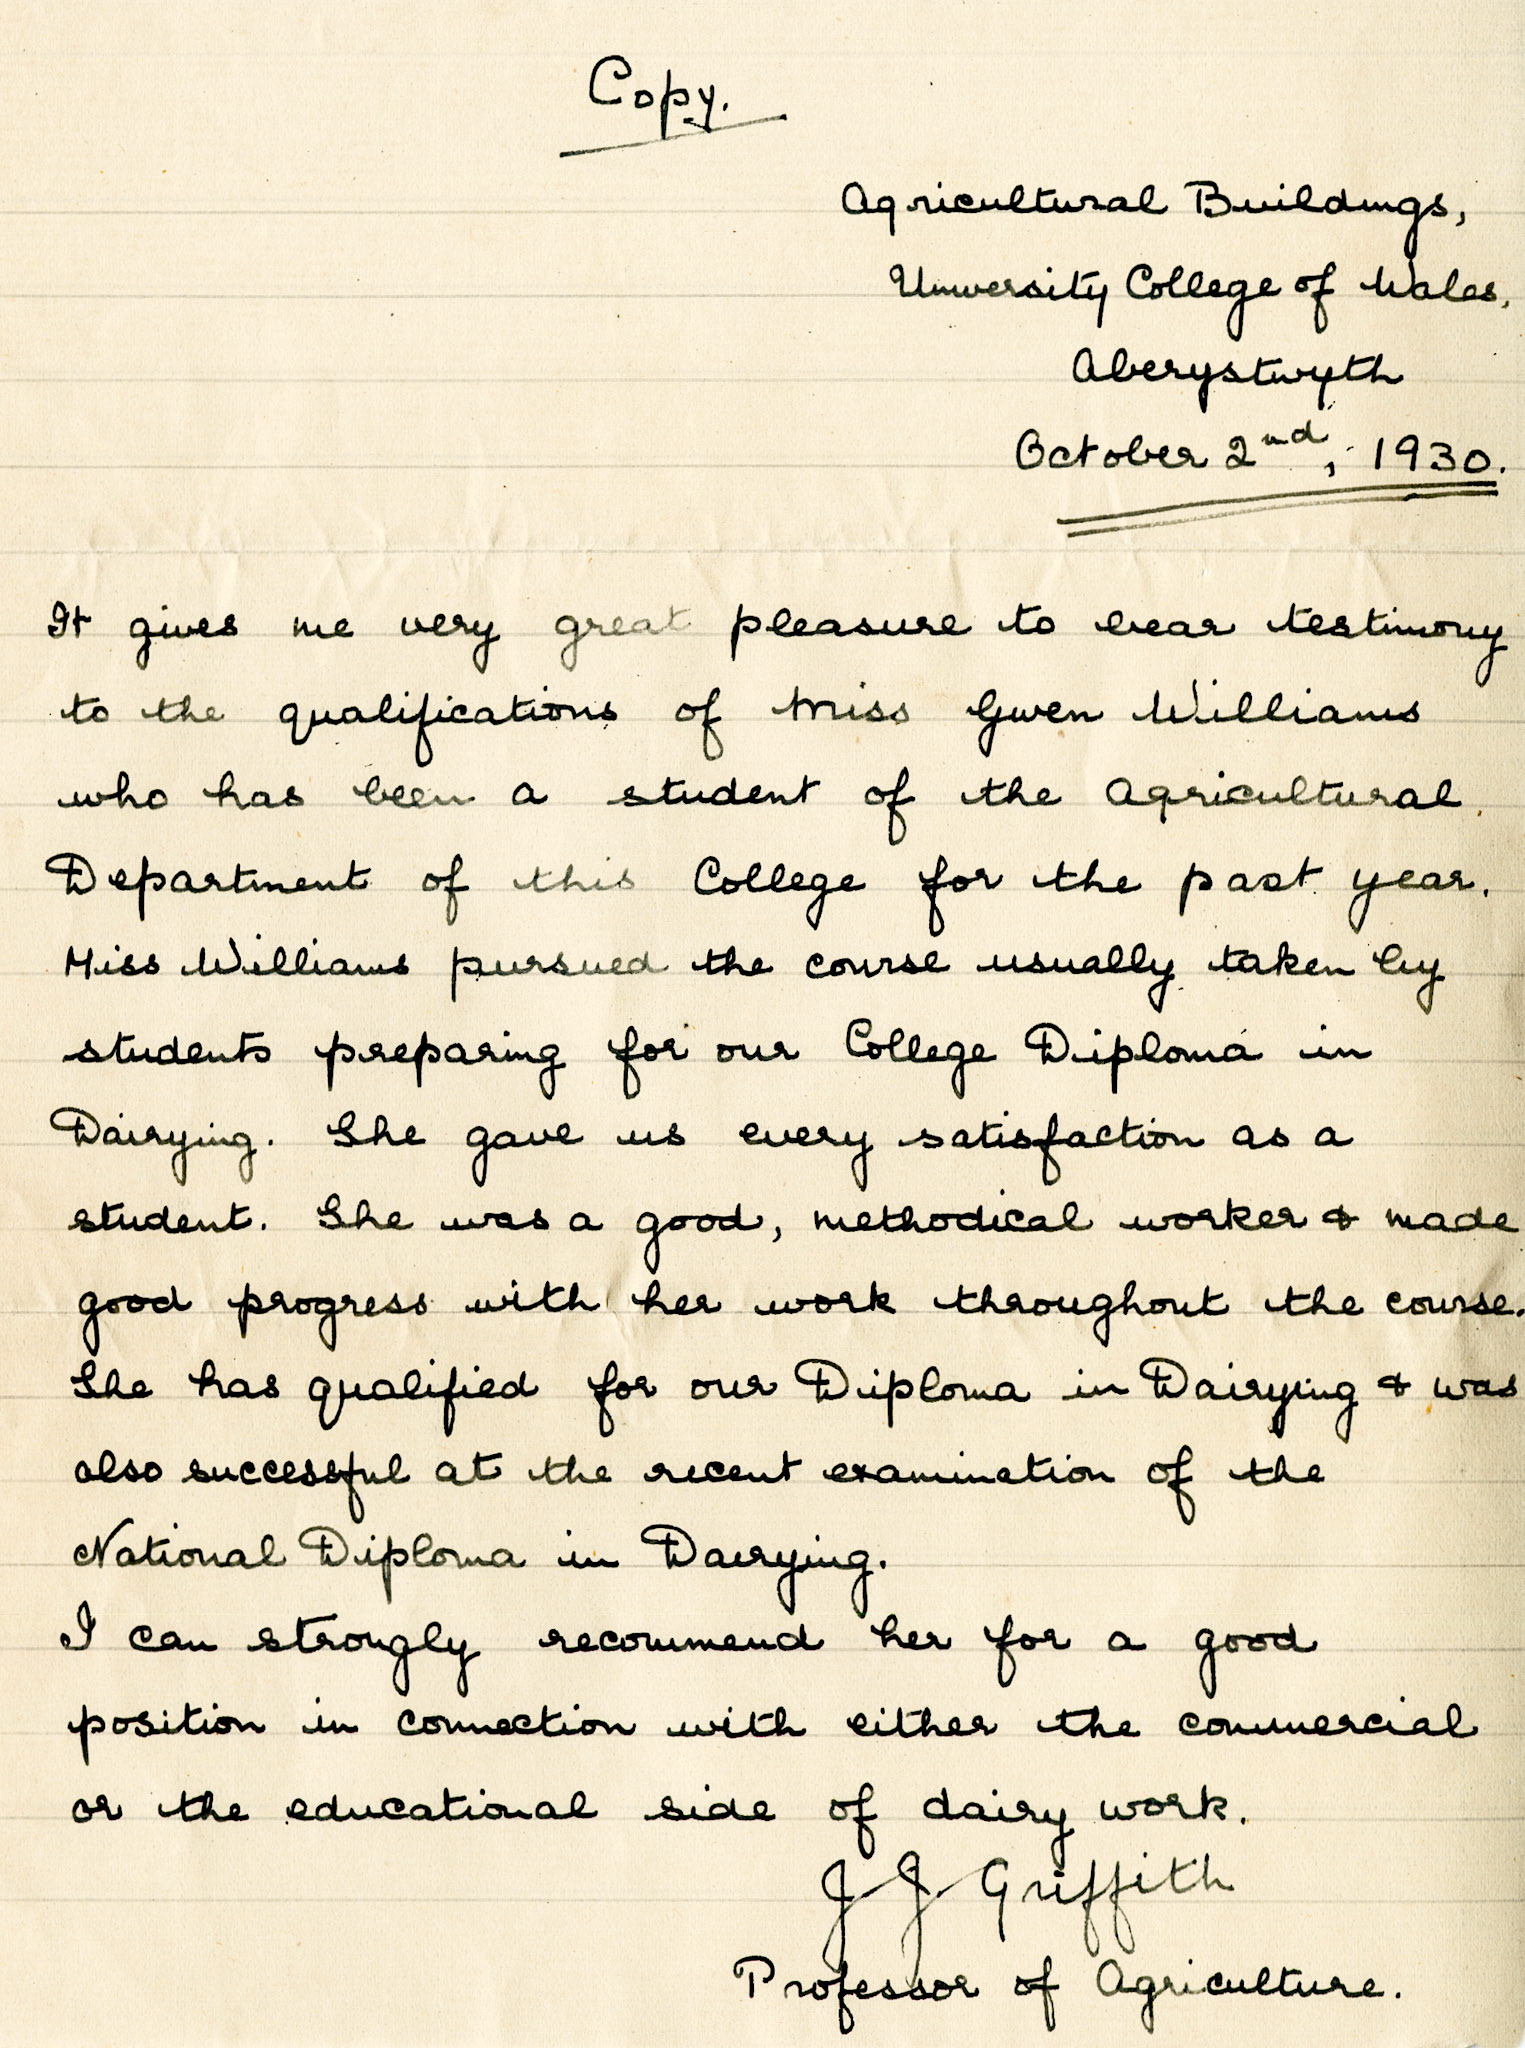 Copy.
Agricultural Buildings,
University College of Wales,
Aberystwyth
October 2nd, 1930.
It gives me very great pleasure to bear testimony
to the qualifications of Miss Gwen Williams
who has been a student of the Agricultural
Department of this College for the past year.
Miss Williams pursued the course usually taken by
students preparing for our College Diploma in
Dairying. She gave us every satisfaction as a
student. She was a good, methodical worker & made
good progress with her work throughout the course.
She has qualified for our Diploma in Dairying & was
also successful at the recent examination of the
National Diploma in Dairying.
I can strongly recommend her for a good
position in connection with either the commercial
or the educational side of dairy work.
J J. Griffith
Professor of Agriculture.